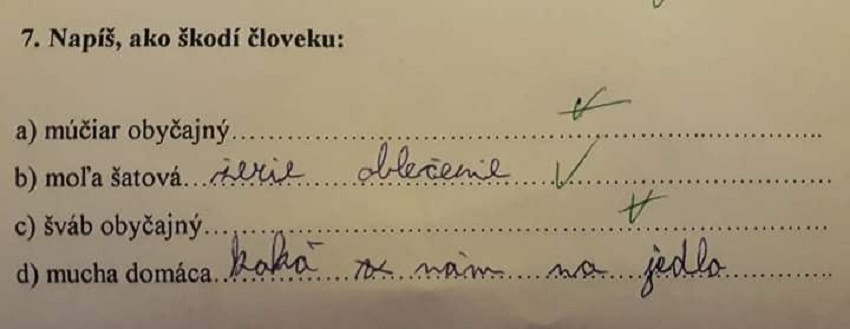 7. Napíš, ako škodí človeku:
a) múčiar obyčajný
b) moľa šatová žerie oblečenie
c) šváb obyčajný
d) mucha domáca kaká nám na jedlo